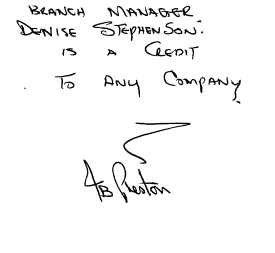 BRANCH MANAGER:
DENISE STEPHENSON:
IS A CREDIT
TO ANY COMPANY!
Preston